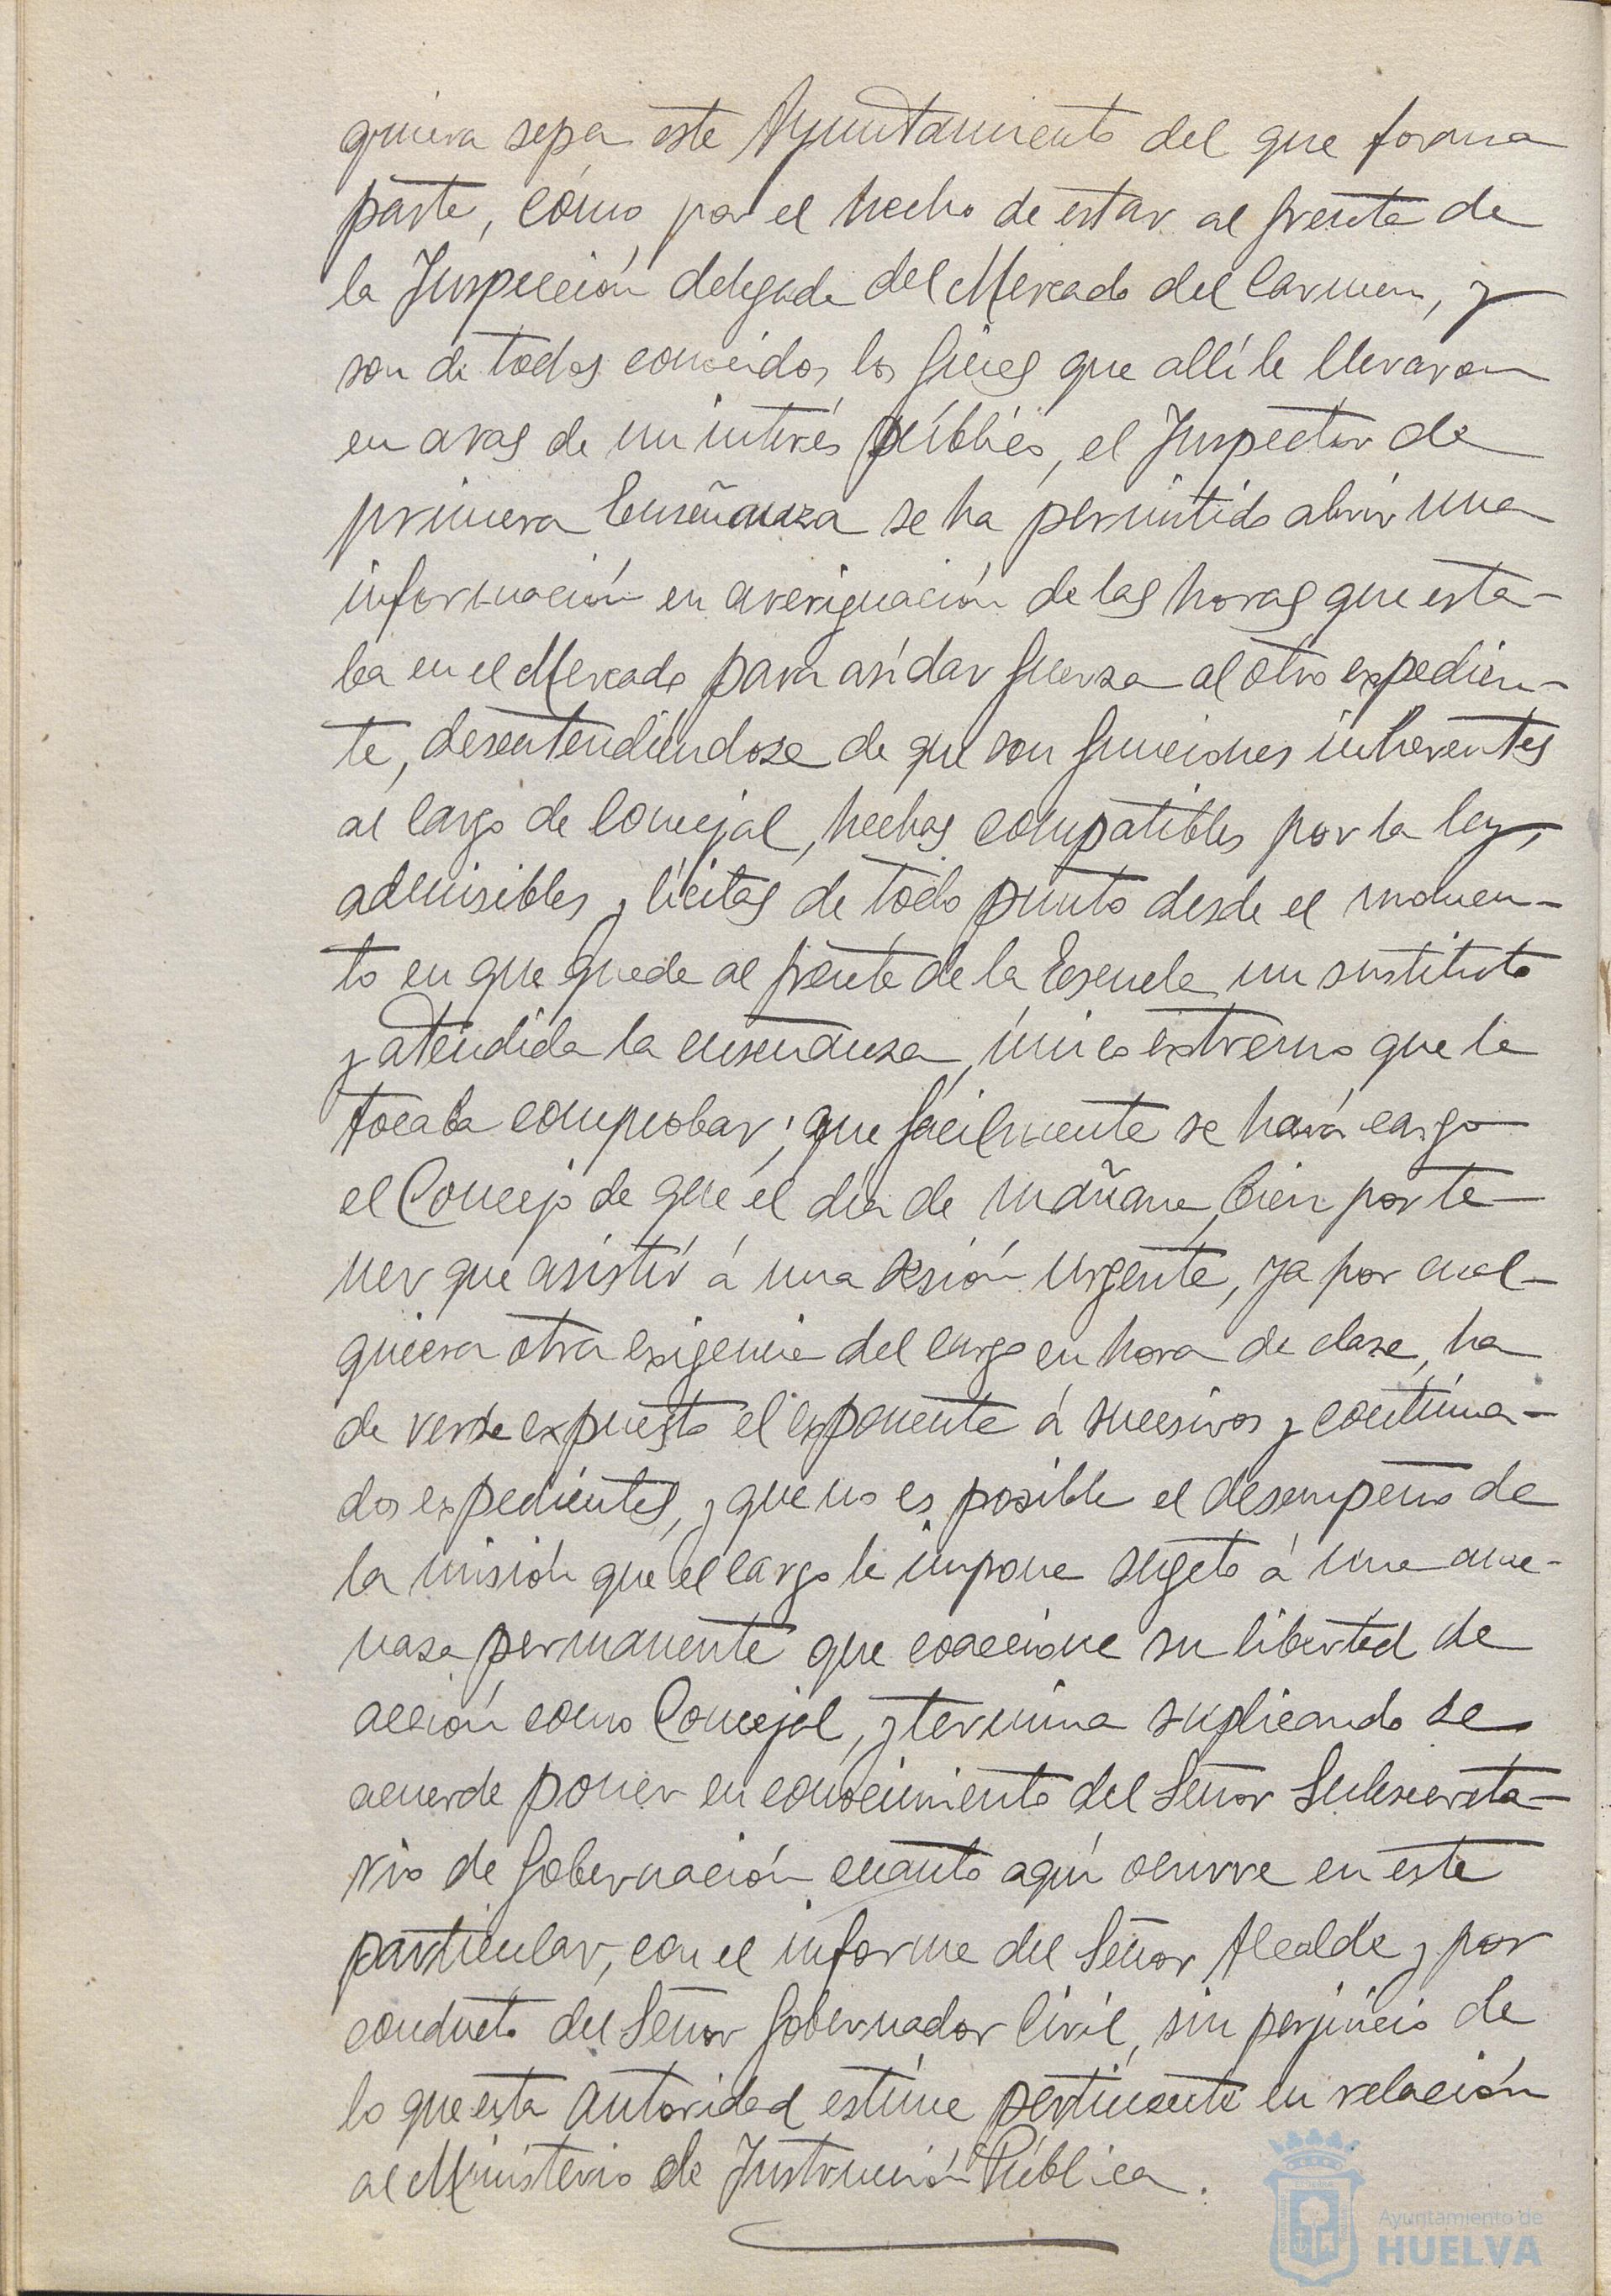 quiera sepa este Ayuntamiento del que forma
parte, cómo por el hecho de estar al frente de
la Inspección delegada del Mercado del Carmen, y
son de todos conocidos los fines que allí le llevaron
en aras de un interés público, el Inspector de
primera Enseñanza se ha permitido abrir una
información en averiguación de las horas que esta-
ba en el Mercado para así dar fuerza al otro expedien-
te, desentendiéndose de que son funciones inherentes
al cargo de Concejal, hechas compatibles por la ley,
admisibles y lícitas de todo punto desde el momen-
to en que quede al frente de la Escuela un sustituto
y atendida la enseñanza, único extremo que le
tocaba comprobar; que fácilmente se hará cargo
el Concejo de que el día de mañana, bien por te-
ner que asistir á una sesión urgente, ya por cual-
quiera otra exigencia del cargo en hora de clase, ha
de verse expuesto el exponente á sucesivos y continua-
dos expedientes, y que no es posible el desempeño de
la misión que el cargo le impone sugeto á una ame-
naza permanente que coaccione su libertad de
acción como Concejal, y termina suplicando se
acuerde poner en conocimiento del Señor Subsecreta-
rio de Gobernación cuanto aquí ocurre en este
particular, con el informe del Señor Alcalde y por
conducto del Señor Gobernador Civil, sin perjuicio de
lo que esta autoridad estime pertinente en relación
al Ministerio de Instrucción Pública.
Ayuntamiento de
HUELVA